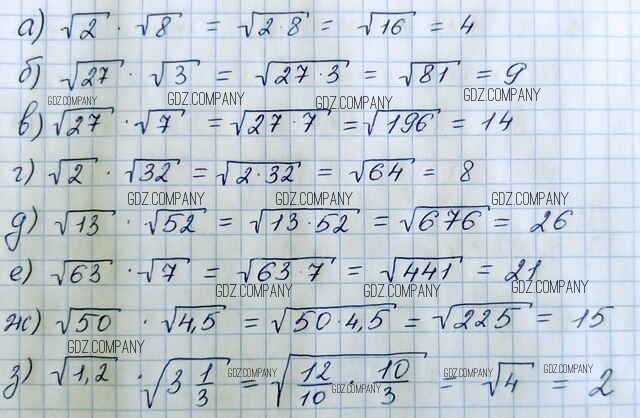 а) √2 · √8 = √2·8 = √16 = 4
б) √27 · √3 = √27·3 = √81 = 9
GDZ.COMPANY GDZ.COMPANY GDZ.COMPANY GDZ.COMPANY
в) √27 · √7 = √27·7 = √196 = 14
г) √2 · √32 = √2·32 = √64 = 8
GDZ.COMPANY GDZ.COMPANY GDZ.COMPANY
д) √13 · √52 = √13·52 = √676 = 26
е) √63 · √7 = √63·7 = √441 = 21
GDZ.COMPANY GDZ.COMPANY GDZ.COMPANY
ж) √50 · √4,5 = √50·4,5 = √225 = 15
GDZ.COMPANY
з) √1,2 · √3 1/3 = √12/10 · 10/3 = √4 = 2
GDZ.COMPANY GDZ.COMPANY GDZ.COMPANY GDZ.COMPANY